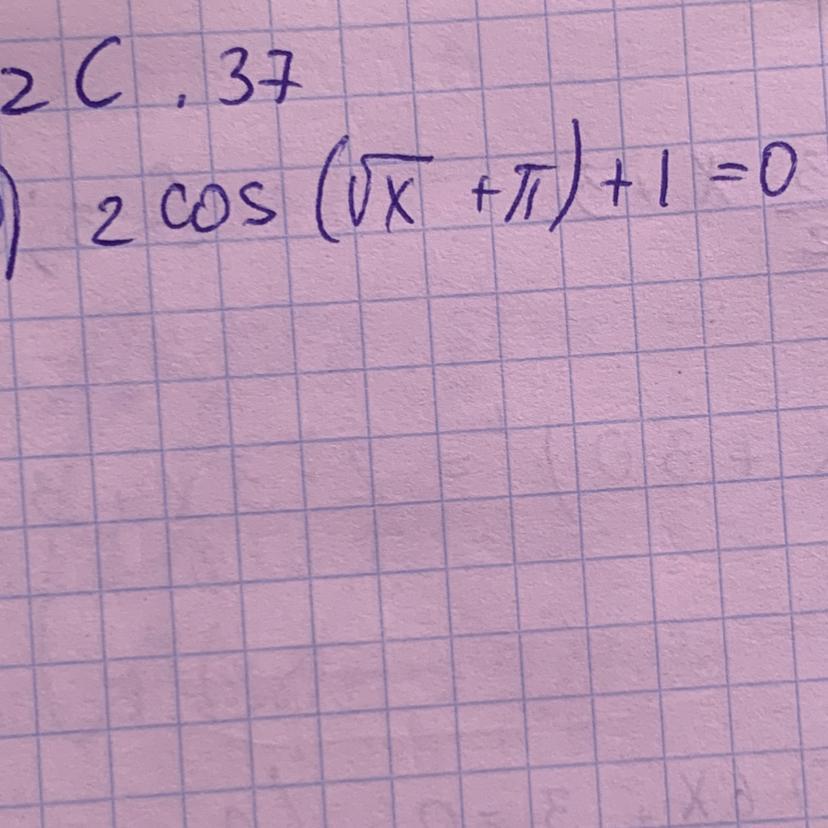 2C . 37
) 2 cos (√x + π) + 1 = 0